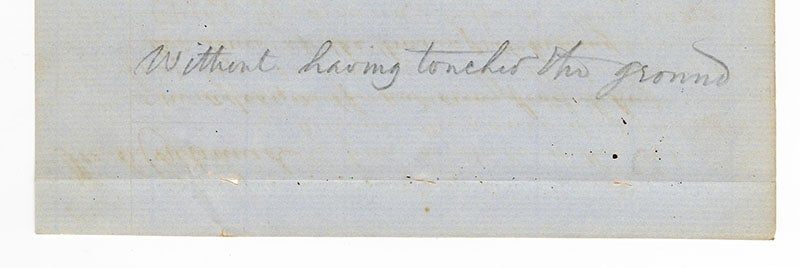 Without having touched the ground